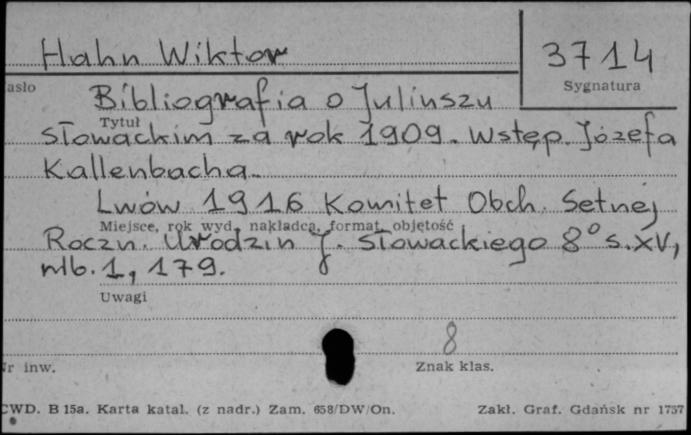 Hahn Wiktor
3714
asło
Sygnatura
Bibliografia o Juliuszu
Tytuł
Słowackim za rok 1909. Wstęp. Józefa
Kallenbacha.
Lwów 1916 Komitet Obch. Setnej
Miejsce, rok wyd., nakładca, format, objętość
Roczn. Urodzin J. Słowackiego 8° s. XV,
nlb. 1, 179.
Uwagi
8
Nr inw.
Znak klas.
CWD. B 15a. Karta katal. (z nadr.) Zam. 658/DW/On.
Zakł. Graf. Gdańsk nr 1757